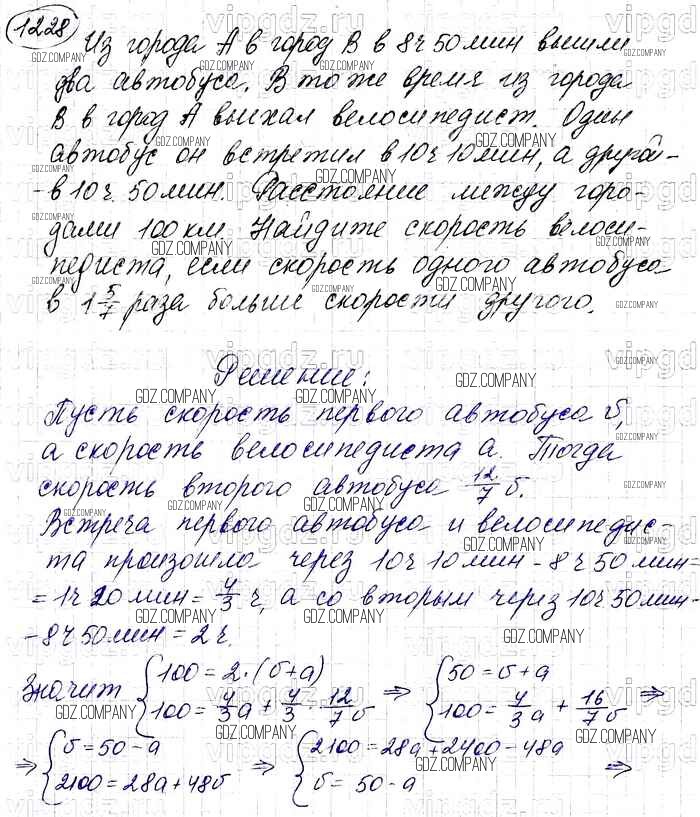 1228
Из города А в город В в 8ч 50 мин вышли
два автобуса. В то же время из города
В в город А выехал велосипедист. Один
автобус он встретил в 10ч 10мин, а другой -
- в 10ч. 50 мин. Расстояние между горо-
дами 100 км. Найдите скорость велоси-
педиста, если скорость одного автобуса
в 1 5/7 раза больше скорости другого.
Решение:
Пусть скорость первого автобуса б,
а скорость велосипедиста а. Тогда
скорость второго автобуса 12/7 б.
Встреча первого автобуса и велосипедис-
та произошла через 10ч 10 мин - 8ч 50 мин =
= 1ч 20 мин = 4/3 ч, а со вторым через 10ч 50мин-
- 8ч 50 мин = 2ч.
Значит { 100 = 2·(б+а) ⇒ { 50 = б + а ⇒
100 = 4/3 а + 4/3 · 12/7 б 100 = 4/3 а + 16/7 б
⇒ { б = 50 - а ⇒ { 2100 = 28а + 2400 - 48а ⇒
2100 = 28а + 48б б = 50 - а
vipgdz.ru
GDZ.COMPANY